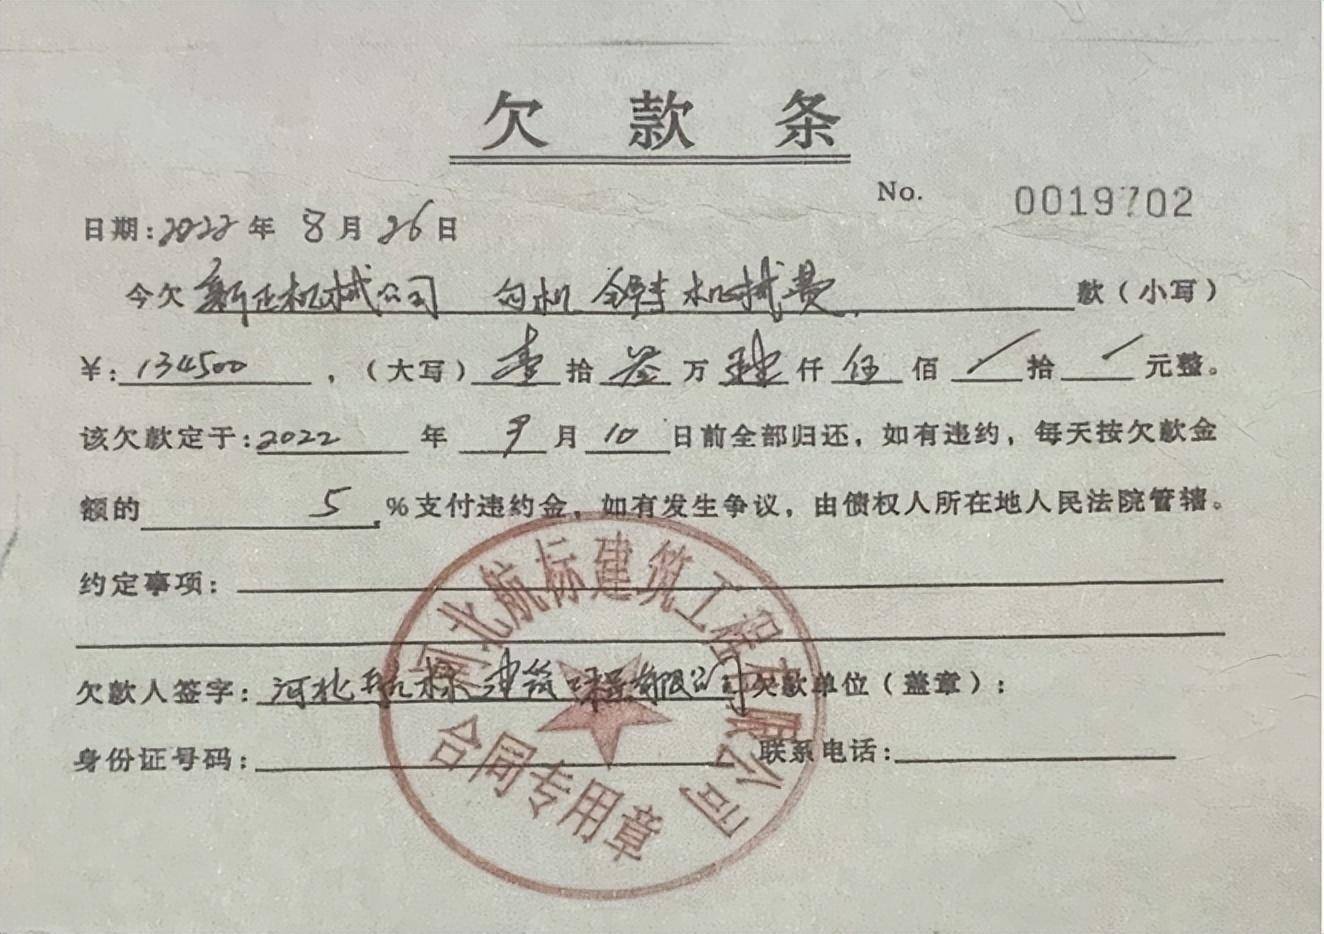 欠款条
No. 0019702
日期:2022年8月26日
今欠 新正机械公司 勾机 铲车机械费 款（小写）
¥:134500，（大写）壹拾叁万肆仟伍佰/拾/元整。
该欠款定于:2022年9月10日前全部归还，如有违约，每天按欠款金
额的5%支付违约金，如有发生争议，由债权人所在地人民法院管辖。
约定事项:
欠款人签字:河北航标建筑工程有限公司 欠款单位（盖章）:
身份证号码: 联系电话:
河北航标建筑工程有限公司
合同专用章